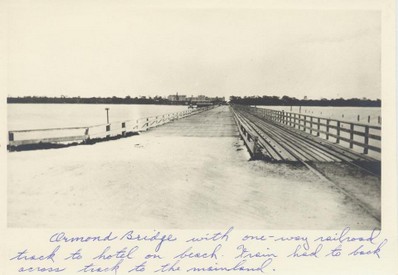 Ormond Bridge with one-way railroad
track to hotel on beach. Train had to back
across track to the mainland.